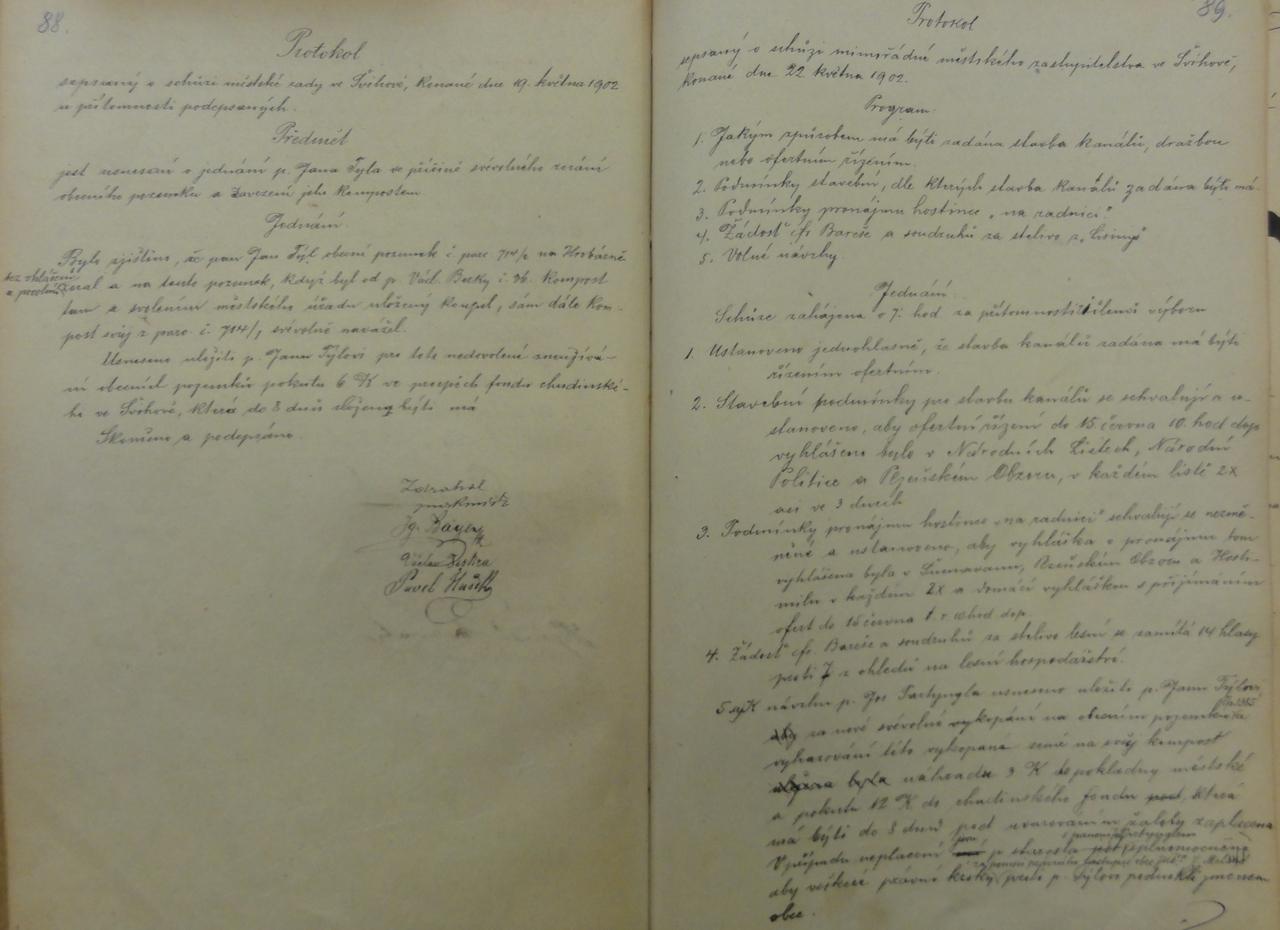 88.
Protokol
sepsaný o schůzi městské rady ve Švihově, konané dne 19. května 1902
u přítomnosti podepsaných.
Předmět
jest usnesení o jednání p. Jana Týla ve příčině svévolného zorání
obecního pozemku a zavezení jeho kompostem.
Jednání.
Bylo zjištěno, že pan Jan Týl obecní pozemek č. parc. 714/2 na
bez ohlášení
zoral a na tento pozemek, když byl od p. Václ. č. 36. kompost
tam s svolením městského úřadu uložený koupil, sám dále kom-
post svůj z parc. č. 714/1 svévolně navážel.
Usneseno uložiti p. Janu Týlovi pro toto nedovolené zneužívá-
ní obecních pozemků pokutu 6 K ve prospěch fondu chudinské-
ho ve Švihově, která do 8 dnů složena býti má.
Skončeno a podepsáno.
Pavel Hašek
89.
Protokol
sepsaný o schůzi mimořádné městského zastupitelstva ve Švihově,
konané dne 22 května 1902.
Program.
1. Jakým způsobem má býti zadána stavba kanálů, dražbou
nebo ofertním řízením.
2. Podmínky stavební, dle kterých stavba kanálů zadána býti má.
3. Podmínky pronájmu hostince „na radnici".
4. Žádosť Fr. Bareše a soudruhů za stelivo z
5. Volné návrhy.
Jednání.
Schůze zahájena o 7. hod za přítomnosti členů výboru
1. Ustanoveno jednohlasně, že stavba kanálů zadána má býti
řízením ofertním.
2. Stavební podmínky pro stavbu kanálů se schvalují a u-
stanoveno, aby ofertní řízení do 15. června 10. hod dop.
vyhlášeno bylo v Národních Listech, Národní
Politice a Plzeňském Obzoru, v každém listě 2x
asi ve 3 dnech
3. Podmínky pronájmu hostince „na radnici" schvalují se nezmě-
něně a ustanoveno, aby vyhláška o pronájmu tom
vyhlášena byla v Šumavanu, Plzeňském Obzoru a Hosti-
milu v každém 2x a domácí vyhláškou s přijímáním
ofert do 15 června t. r. hod dop.
4. Žádosť Fr. Bareše a soudruhů za stelivo lesní se zamítá 14 hlasy
proti 7 z ohledů na lesní hospodářství.
5. K návrhu p. Jos usneseno uložiti p. Janu Týlovi,
za nové svévolné vykopání na obecním pozemku
vyhazování této vykopané země na svůj kompost
náhradu 3 K do pokladny městské
a pokutu 12 K do chudinského fondu, která
má býti do 8 dnů pod uvarováním žaloby zaplacena
V případu neplacení p. starosta
aby veškeré právní kroky proti p. Týlovi podnikli jmenem
obce.